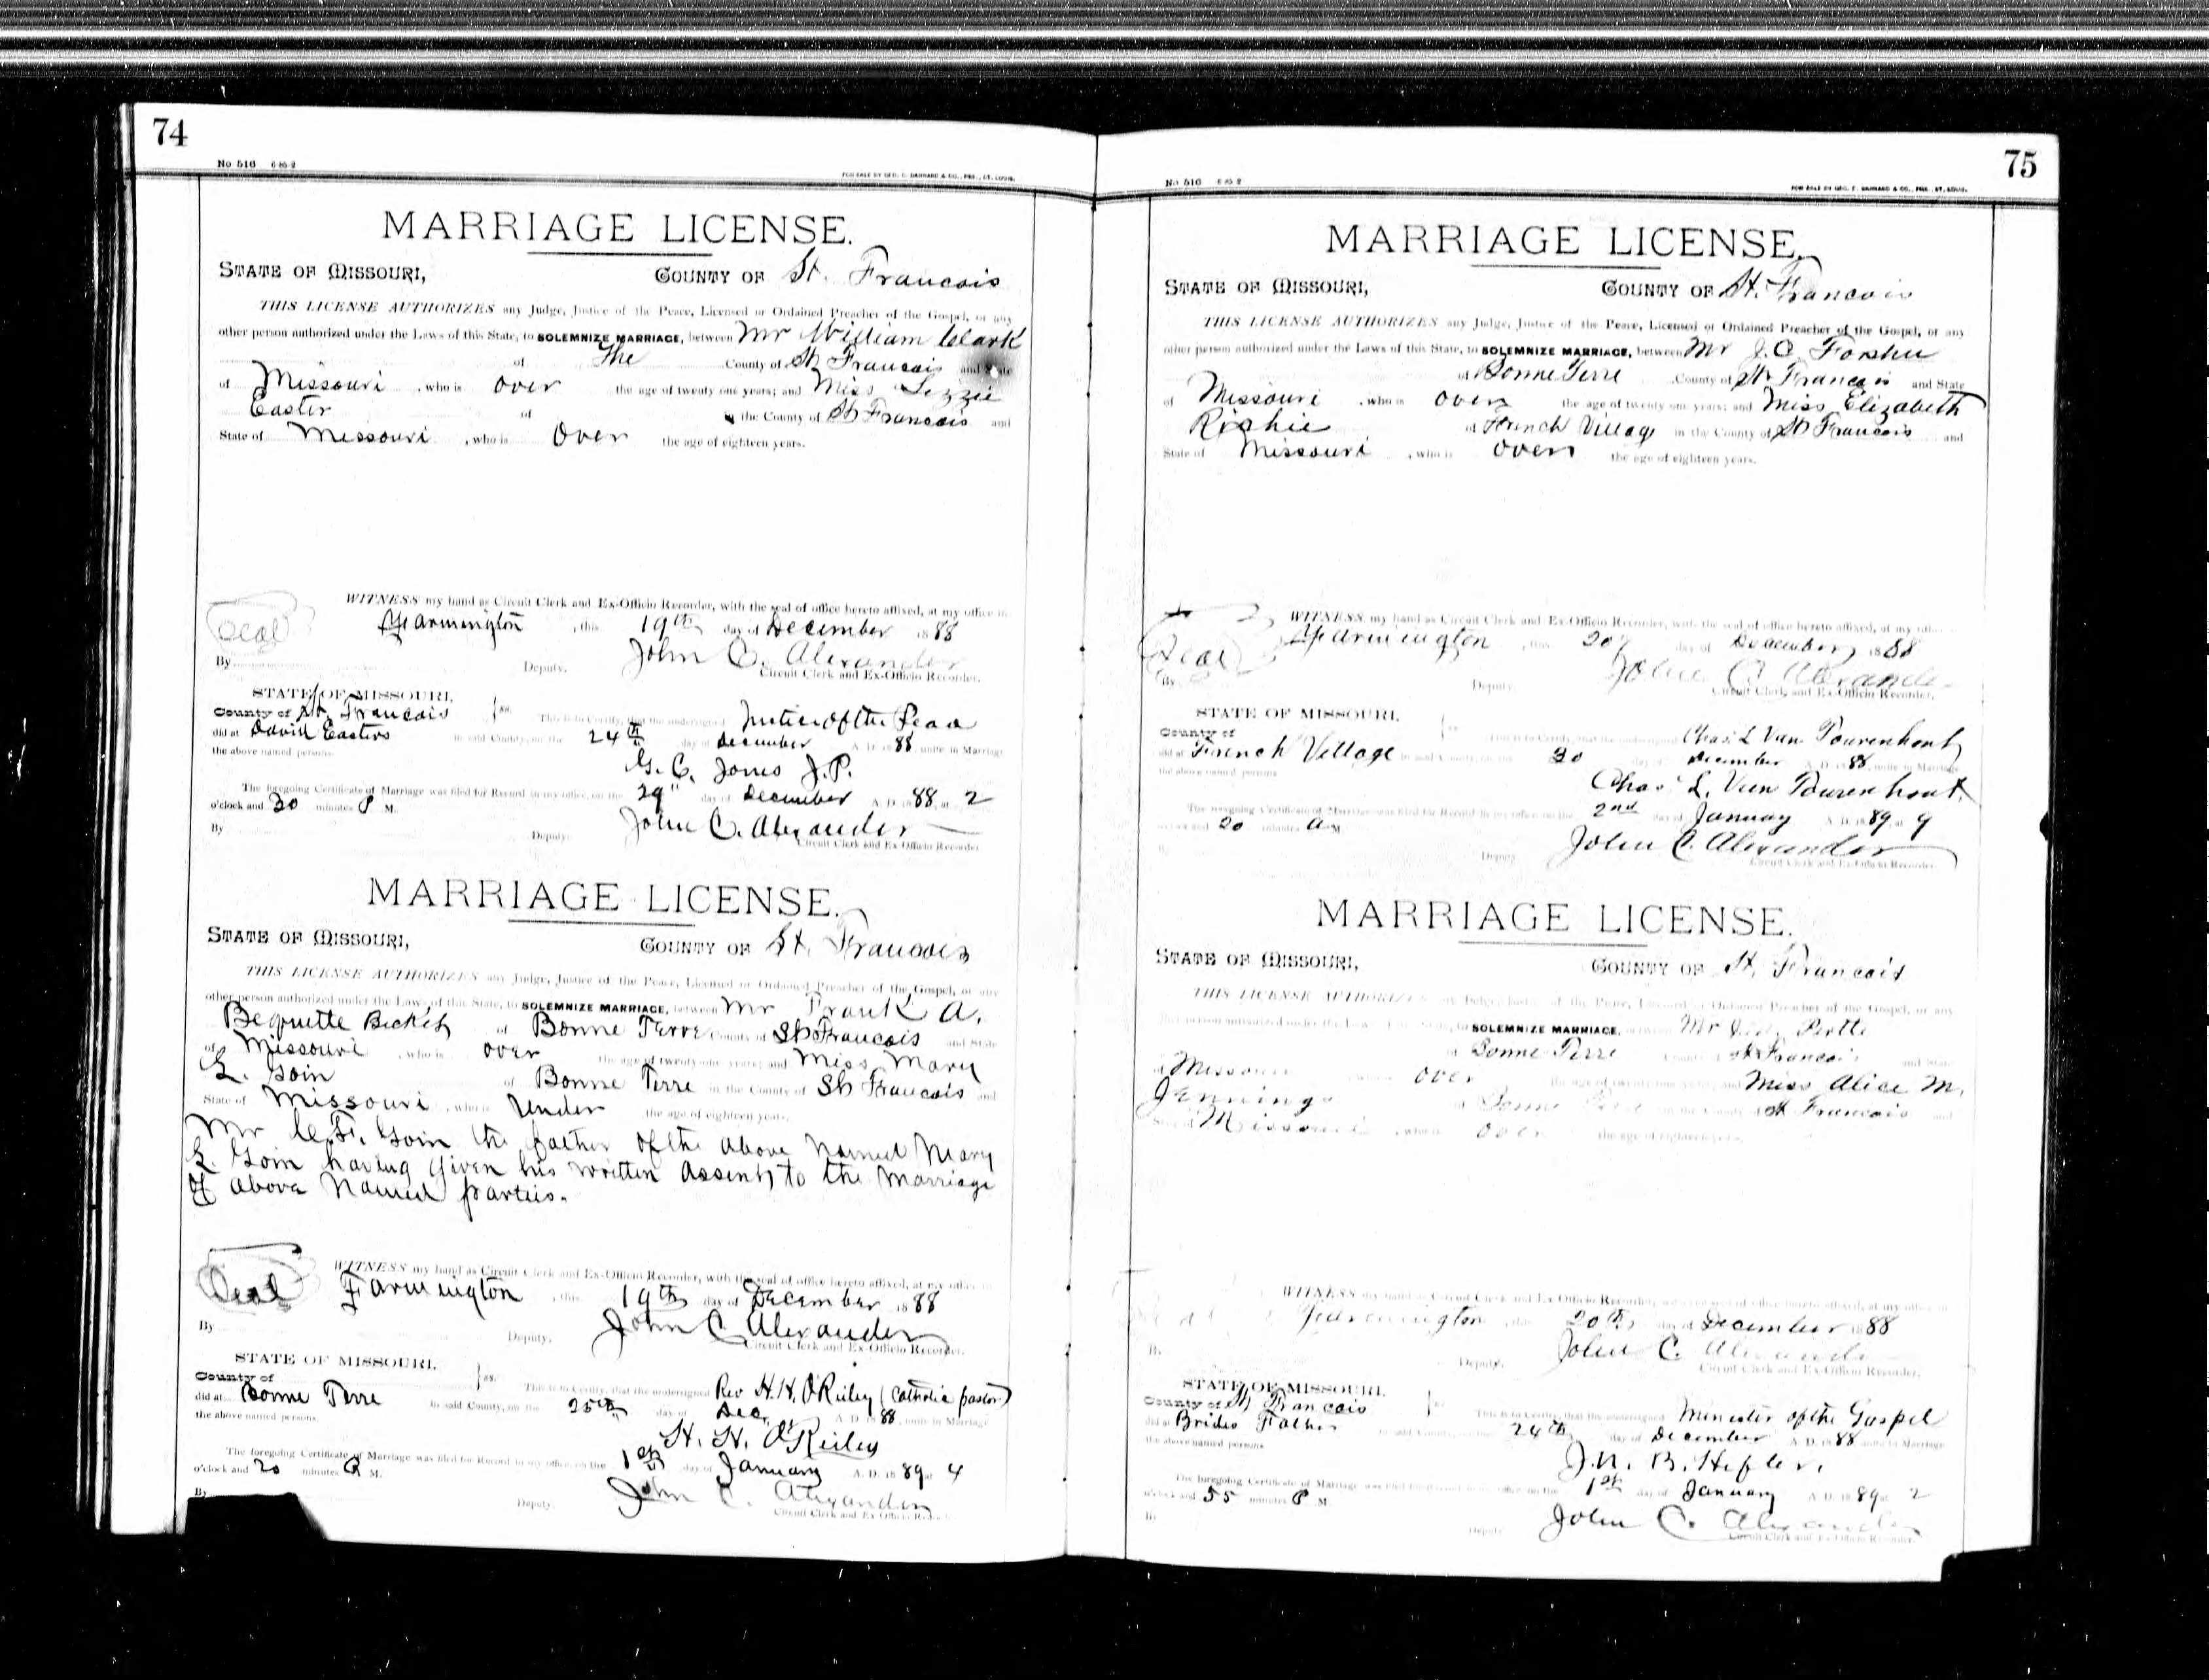 74
No 516 6-85-2
FOR SALE BY GEO. D. BARNARD & CO., PRS., ST. LOUIS.
MARRIAGE LICENSE.
STATE OF MISSOURI, COUNTY OF St. Francois
THIS LICENSE AUTHORIZES any Judge, Justice of the Peace, Licensed or Ordained Preacher of the Gospel, or any
other person authorized under the Laws of this State, to SOLEMNIZE MARRIAGE, between Mr William Clark
of The County of St Francois and State
of Missouri, who is over the age of twenty one years; and Miss Lizzie
Easter of in the County of St Francois and
State of Missouri, who is Over the age of eighteen years.
WITNESS my hand as Circuit Clerk and Ex-Officio Recorder, with the seal of office hereto affixed, at my office in
Seal Farmington, this 19th day of December 1888
By Deputy. John C. Alexander
Circuit Clerk and Ex-Officio Recorder.
STATE OF MISSOURI,
County of St. Francois ss. This is to Certify, that the undersigned Justice of the Peace
did at David Easters in said County, on the 24th day of December A. D. 1888, unite in Marriage
the above named persons.
G. C. Jones J.P.
The foregoing Certificate of Marriage was filed for Record in my office, on the 29" day of December A. D. 1888, at 2
o'clock and 30 minutes P M.
John C. Alexander
By Deputy. Circuit Clerk and Ex-Officio Recorder
MARRIAGE LICENSE.
STATE OF MISSOURI, COUNTY OF St. Francois
THIS LICENSE AUTHORIZES any Judge, Justice of the Peace, Licensed or Ordained Preacher of the Gospel, or any
other person authorized under the Laws of this State, to SOLEMNIZE MARRIAGE, between Mr Frank A.
Bequette Becket of Bonne Terre County of St Francois and State
of Missouri, who is over the age of twenty-one years; and Miss Mary
E. Goin of Bonne Terre in the County of St Francois and
State of Missouri, who is Under the age of eighteen years.
Mr C.F. Goin the father of the above named Mary
E. Goin having given his written assent to the marriage
of above Named parties.
WITNESS my hand as Circuit Clerk and Ex-Officio Recorder, with the seal of office hereto affixed, at my office in
Seal Farmington, this 19th day of December 1888
By Deputy. John C Alexander
Circuit Clerk and Ex-Officio Recorder.
STATE OF MISSOURI,
County of ss. This is to Certify, that the undersigned Rev H. H. O'Reiley (Catholic pastor)
did at Bonne Terre in said County, on the 25th day of Dec. A. D. 1888, unite in Marriage
the above named persons.
H. H. O'Reiley
The foregoing Certificate of Marriage was filed for Record in my office, on the 1st day of January A. D. 1889 at 4
o'clock and 20 minutes M.
By Deputy. John C. Alexander
Circuit Clerk and Ex-Officio Recorder
75
No 516 6-85-2
FOR SALE BY GEO. D. BARNARD & CO., PRS., ST. LOUIS.
MARRIAGE LICENSE.
STATE OF MISSOURI, COUNTY OF St. Francois
THIS LICENSE AUTHORIZES any Judge, Justice of the Peace, Licensed or Ordained Preacher of the Gospel, or any
other person authorized under the Laws of this State, to SOLEMNIZE MARRIAGE, between Mr J. C. Forshee
of Bonne Terre County of St Francois and State
of Missouri, who is over the age of twenty one years; and Miss Elizabeth
Richie of French Village in the County of St Francois and
State of Missouri, who is over the age of eighteen years.
WITNESS my hand as Circuit Clerk and Ex-Officio Recorder, with the seal of office hereto affixed, at my office
Seal Farmington, this 20 day of December 1888
By Deputy. John C Alexander
Circuit Clerk and Ex-Officio Recorder.
STATE OF MISSOURI,
County of This is to Certify, that the undersigned Chas. L Van Tourenhout
did at French Village in said County, on the 30 day of December A. D. 1888, unite in Marriage
the above named persons
Chas L. Van Tourenhout.
The foregoing Certificate of Marriage was filed for Record in my office, on the 2nd day of January A. D. 1889 at 9
o'clock and 20 minutes A M
John C. Alexander
Deputy Circuit Clerk and Ex-Officio Recorder.
MARRIAGE LICENSE.
STATE OF MISSOURI, COUNTY OF St. Francois
THIS LICENSE AUTHORIZES any Judge, Justice of the Peace, Licensed or Ordained Preacher of the Gospel, or any
other person authorized under the Laws of this State, to SOLEMNIZE MARRIAGE, between Mr
of Bonne Terre County of St Francois and State
of Missouri who is over the age of twenty one years; and Miss Alice M.
Jennings of Bonne Terre in the County of St Francois and
State of Missouri, who is over the age of eighteen years.
WITNESS my hand as Circuit Clerk and Ex-Officio Recorder, with the seal of office hereto affixed, at my office in
Farmington, this 20th day of December 1888
By Deputy. John C. Alexander
Circuit Clerk and Ex-Officio Recorder.
STATE OF MISSOURI,
County of St Francois This is to Certify, that the undersigned Minister of the Gospel
did at Brides Father in said County, on the 24th day of December A. D. 1888 unite in Marriage
the above named persons
J. N. B. Hepler.
The foregoing Certificate of Marriage was filed for Record in my office, on the 1st day of January A. D. 1889 at 2
o'clock and 55 minutes P M.
By Deputy John C. Alexander
Circuit Clerk and Ex-Officio Recorder.